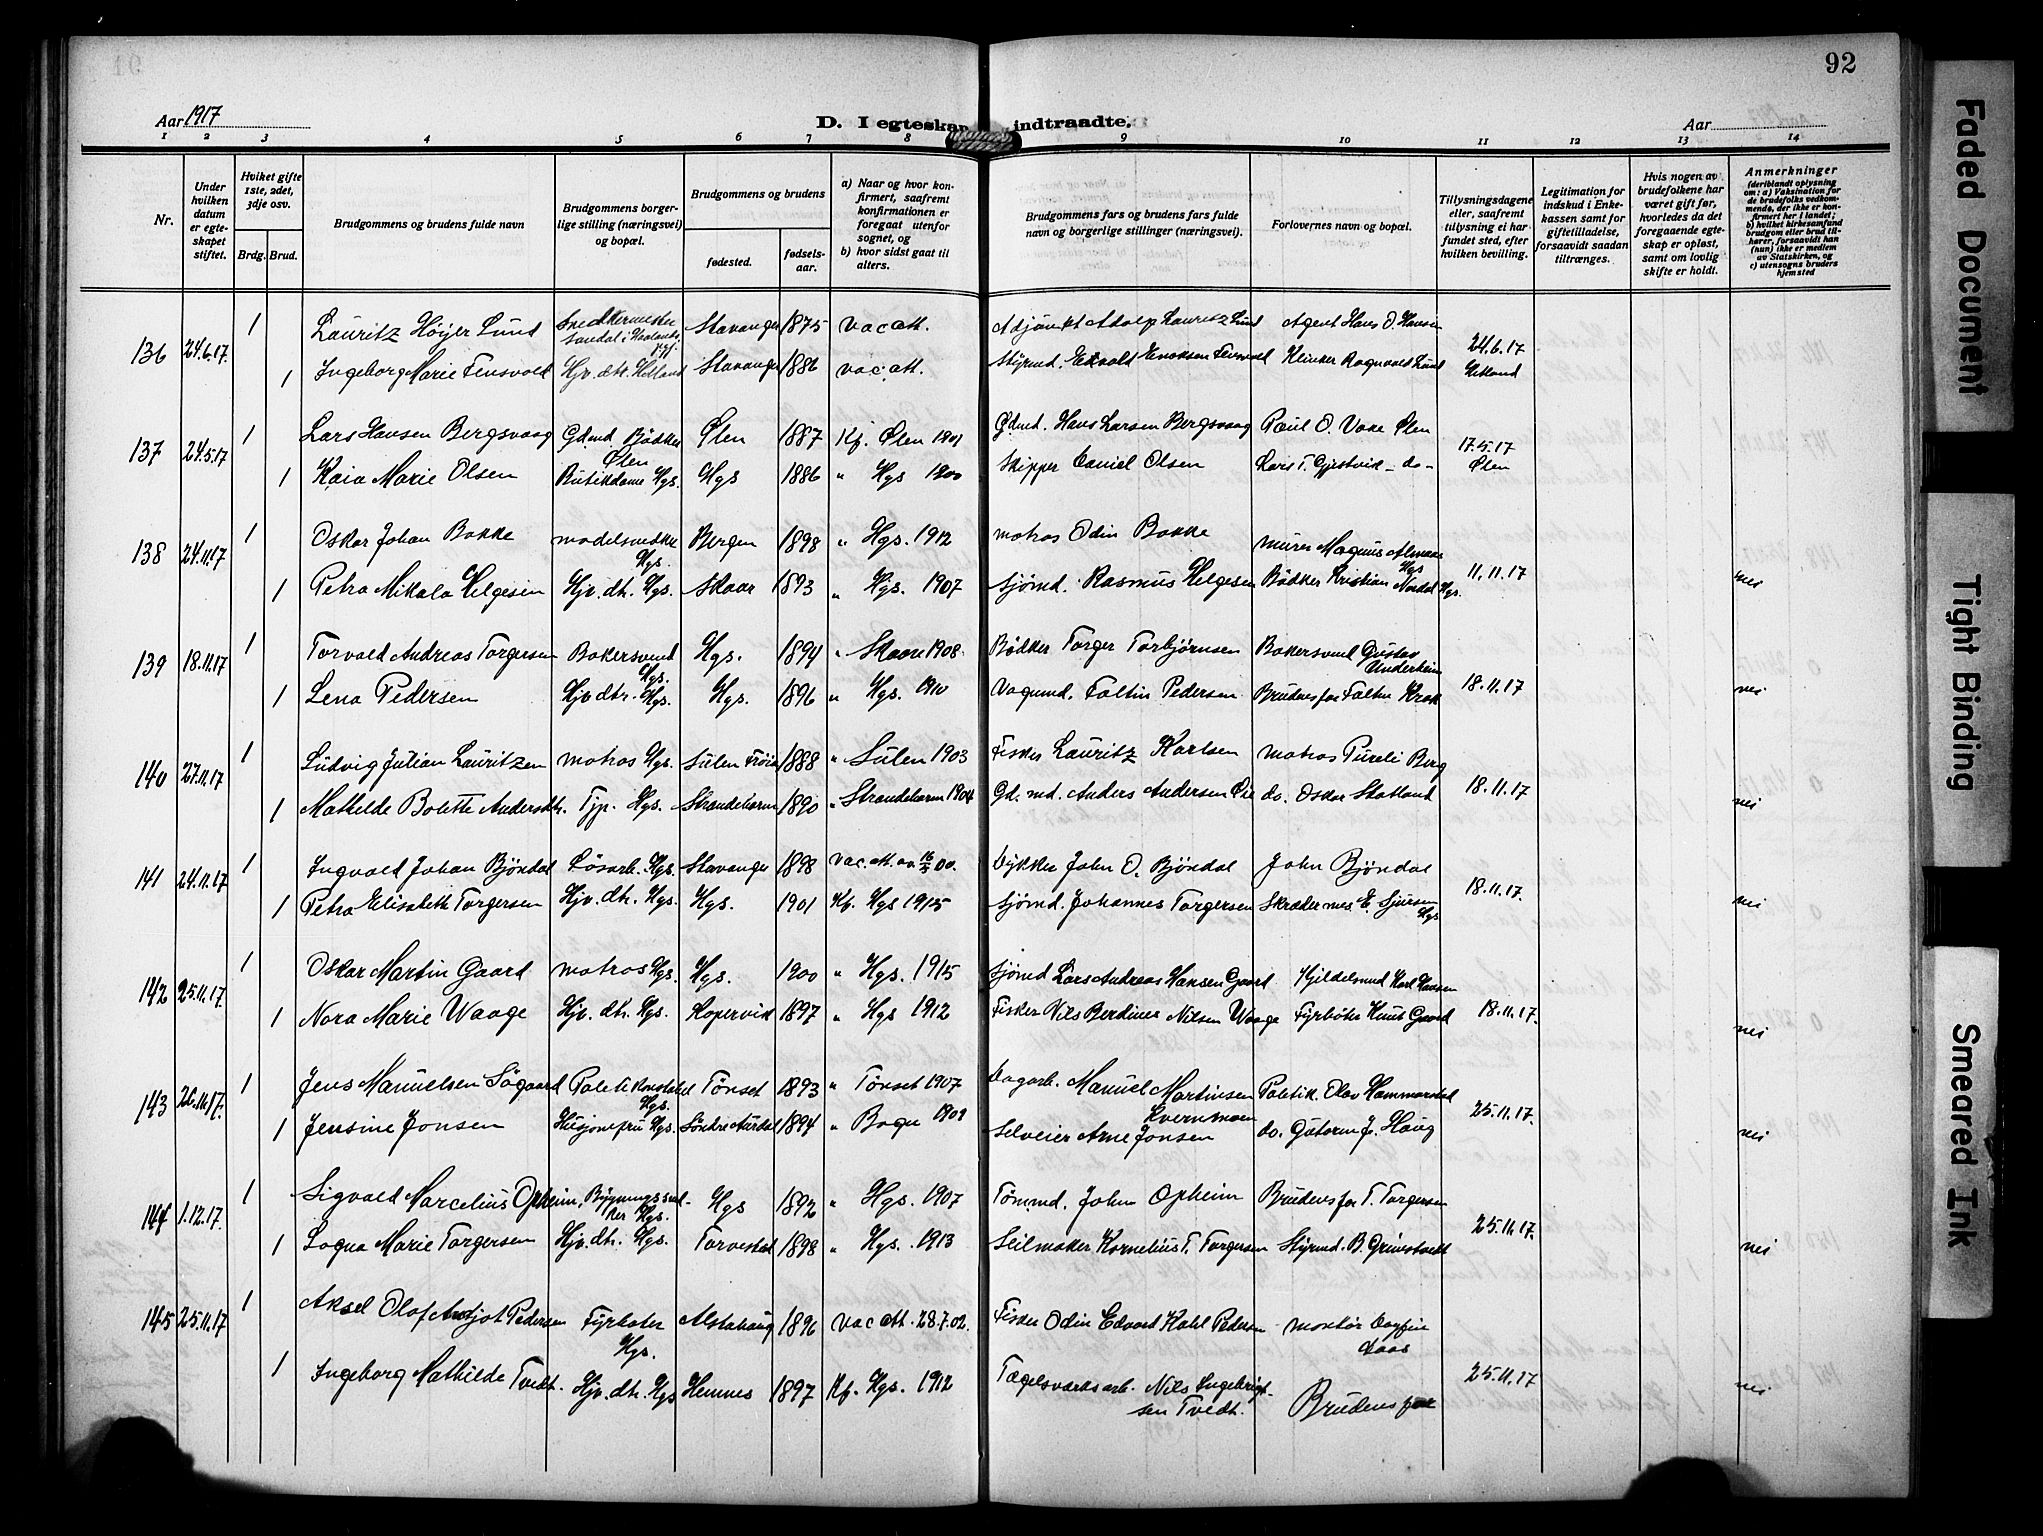 92
Aar 1917
D. I egteskab indtraadte.
Aar
1 2 3 4 5 6 7 8 9 10 11 12 13 14
Nr.
Under hvilken datum er egteskapet stiftet.
Hviket gifte 1ste, 2det, 3dje osv.
Brdg. Brud.
Brudgommens og brudens fulde navn
Brudgommens borgerlige stilling (næringsvei) og bopæl.
Brudgommens og brudens
fødested.
fødselsaar.
a) Naar og hvor konfirmert, saafremt konfirmationen er foregaat utenfor sognet, og
b) hvor sidst gaat til alters.
Brudgommens fars og brudens fars fulde navn og borgerlige stillinger (næringsvei).
Forlovernes navn og bopæl.
Tillysningsdagene eller, saafremt tillysning ei har fundet sted, efter hvilken bevilling.
Legitimation for indskud i Enkekassen samt for giftetilladelse, forsaavidt saadan tiltrænges.
Hvis nogen av brudefolkene har været gift før, hvorledes da det foregaaende egteskap er opløst, samt om lovlig skifte er holdt.
Anmerkninger
(deriblandt oplysning om: a) Vaksination for de brudefolks vedkommende, der ikke er konfirmert her i landet; b) hvilket kirkesamfund brudgom eller brud tilhører, forsaavidt han (hun) ikke er medlem av Statskirken, og c) utensogns bruders hjemsted
136 24.6.17. 1 Lauritz Höyer Lund Snedkermester Stavanger 1875 vac att. Adjunkt Adolf Lauritz Lund Agent Hans O. Hansen 24.6.17
1 Ingeborg Marie Fensvold Hjv. dtr. Hetland Stavanger 1886 vac. att. Styrmd. Enoksen Fensvold Klinker Ragnvald Lund Hetland
137 24.5.17 1 Lars Hansen Bergsvaag Gdmd. Bödker Ölen Ølen 1887 Kf. Ølen 1901 Gdmd. Hans Larsen Bergsvaag Paul O. Vake Ølen 17.5.17
1 Kaia Marie Olsen Butikdame Hgs. Hgs 1886 " Hgs 1900 Skipper Daniel Olsen Lars T. Gjestvik - do - Ølen
138 24.11.17 1 Oskar Johan Bakke modelsnedker Hgs. Bergen 1898 " Hgs. 1912 matros Odin Bakke murer Magnus Almaas Hgs 11.11.17
1 Petra Mikala Helgesen Hjv. dtr. Hgs. Skaar 1893 " Hgs. 1907 Sjömd. Rasmus Helgesen Bödker Kristian Nordal Hgs. nei
139 18.11.17 1 Torvald Andreas Torgersen Bakersvend Hgs. Hgs. 1894 " Skaare 1908 Bödker Torger Torbjørnsen Bakersvend Gustav Underheim 18.11.17
1 Lena Pedersen Hjv dtr. Hgs. Hgs. 1896 " Hgs. 1910 Vognmd. Faltin Pedersen Brudens far Faltin nei
140 27.11.17 1 Ludvig Julian Lauritzen matros Hgs. Sulen 1888 " Sulen 1903 Fisker Lauritz Karlsen matros Berg 18.11.17
1 Mathilde Bolette Andersdtr. Tjp. Hgs. Strandebarm 1890 " Strandebarm 1904 Gd. md. Anders Andersen do. Oskar nei
141 24.11.17 1 Ingvald Johan Bjöndal Lösarb. Hgs. Stavanger 1898 vac. att. av 00. Dykker John O. Bjöndal John Bjöndal 18.11.17.
1 Petra Elisabeth Torgersen Hjv. dtr. Hgs. Hgs. 1901 Kf. Hgs 1915 Sjömd. Johannes Torgersen Skræder mes. E. Sjursen Hgs nei
142 25.11.17. 1 Oskar Martin Gaard matros Hgs. Hgs. 1900 " Hgs. 1915 Sjömd Lars Andreas Hansen Gaard Karl Hansen 18.11.17.
1 Nora Marie Waage Hjv. dtr. Hgs. Kopervik 1897 " Hgs 1912 Fisker Nils Berdines Nilsen Waage Fyrböter Knut Gaard nei
143 26.11.17. 1 Jens Manuelsen Sögaard Politikonstabel Hgs. Tönset 1893 " Tönset 1907 Dagarb. Manuel Martinsen Kvernmoen Politik. Olav Hammerstad 25.11.17.
1 Jensine Jonsen Husjomfru Hgs. Söndre Aurdal 1894 " Bagn 1909 Selveier Arne Jonsen do. Gutorm J. Haug nei
144 1.12.17. 1 Sigvald Marcelius Opheim, Bygningssnedker Hgs. Hgs 1892 " Hgs. 1907 Tömmd. John Opheim Brudens far T. Torgersen 25.11.17.
1 Lagna Marie Torgersen Hjv. dtr. Hgs. Torvestad 1898 " Hgs. 1913 Seilmaker Kornelius T. Torgersen Styrmd. B. Grindstveit nei
145 25.11.17 1 Aksel Olaf Pedersen Fyrböter Hgs. Alstahaug 1896 vac att. 28.7.02. Fisker Odin Edvard Kahl Pedersen montör Dagfin Daas 25.11.17
1 Ingeborg Mathilde Tvedt. Hjv. dtr. Hgs Hemnes 1897 Kf. Hgs. 1912 Tegelsverksarb. Nils Ingebrigtsen Tvedt. Brudens far nei
Faded Document
Tight Binding
Smeared Ink